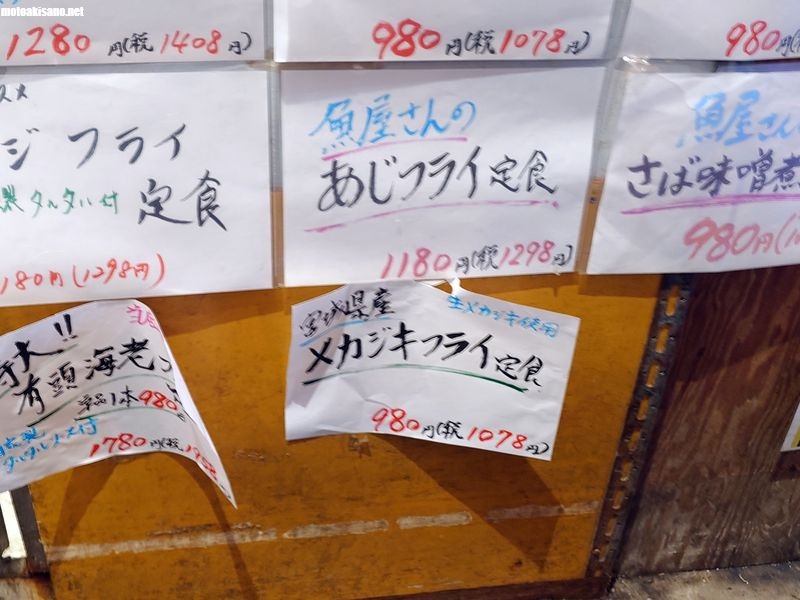 motoakisano.net
1280円(税1408円)
980円(税1078円)
980円(税
スメ
ジフライ
製タルタル付 定食
180円(1298円)
魚屋さんの
あじフライ定食
1180円(税1298円)
魚屋さん
さば味噌煮
980円(
大!!
有頭海老
単品1本980
タルタルソース付
1780円(税
宮城県産
生メカジキ使用
メカジキフライ定食
980円(税1078円)